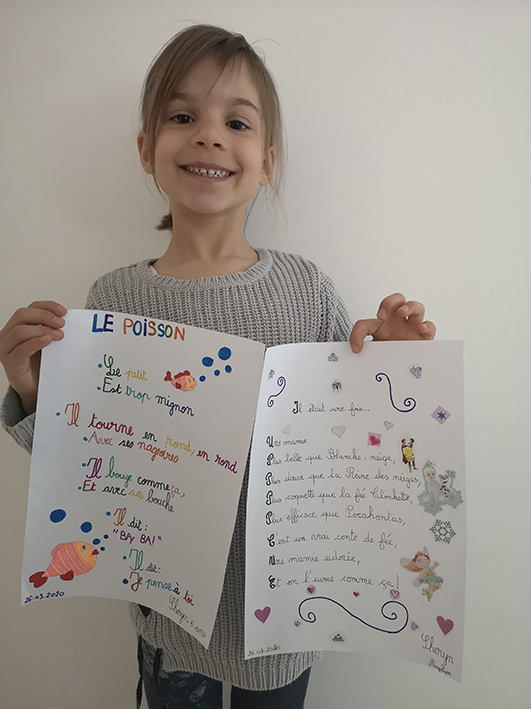 LE POISSON
• Le petit
• Est trop mignon
• Il tourne en rond, en rond
• Avec ses nageoires
• Il bouge comme ça,
• Et avec sa bouche
• Il dit:
"BA, BA!"
• Il dit:
• Je pense à toi
Sheryn 6 ans
26.03.2020
Il était une fois...
Une mamie
Plus belle que Blanche-neige,
Plus douce que la Reine des neiges,
Plus coquette que la fée Clochette,
Plus efficace que Pocahontas,
C'est un vrai conte de fée,
Une mamie adorée,
Et on l'aime comme ça!
26.03.2020
Sheryn